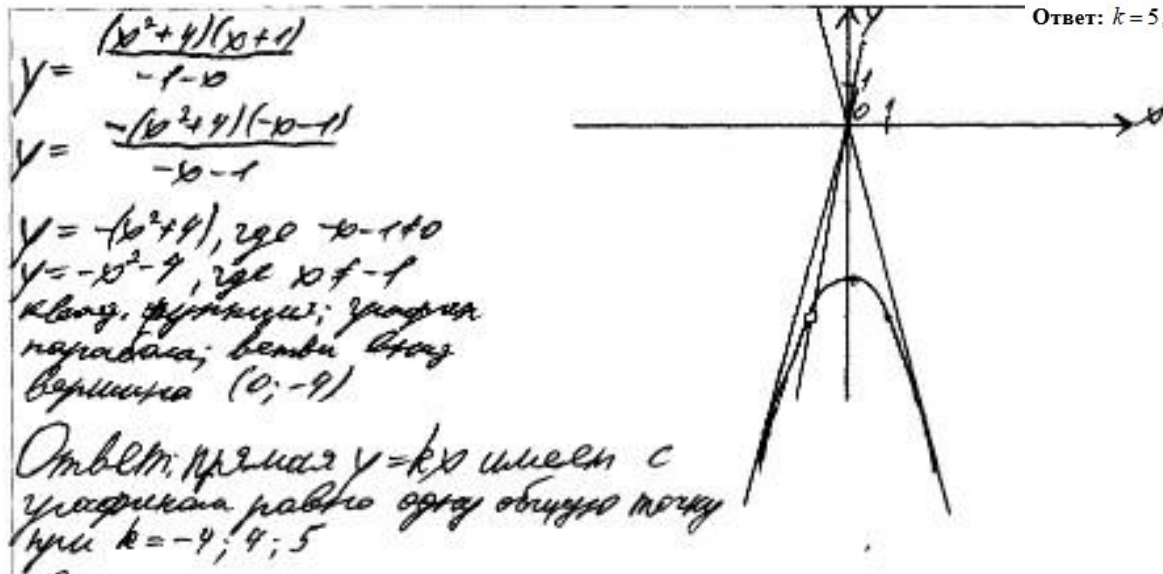 Ответ: k = 5
y = (x²+4)(x+1) / -1-x
y = -(x²+4)(-x-1) / -x-1
y = -(x²+4), где -x-1≠0
y = -x²-4, где x≠-1
квад. функция; график
парабола; ветви вниз
вершина (0; -4)
Ответ: прямая y=kx имеет с
графиком равно одну общую точку
при k=-4; 4; 5
y
1
0
1
x